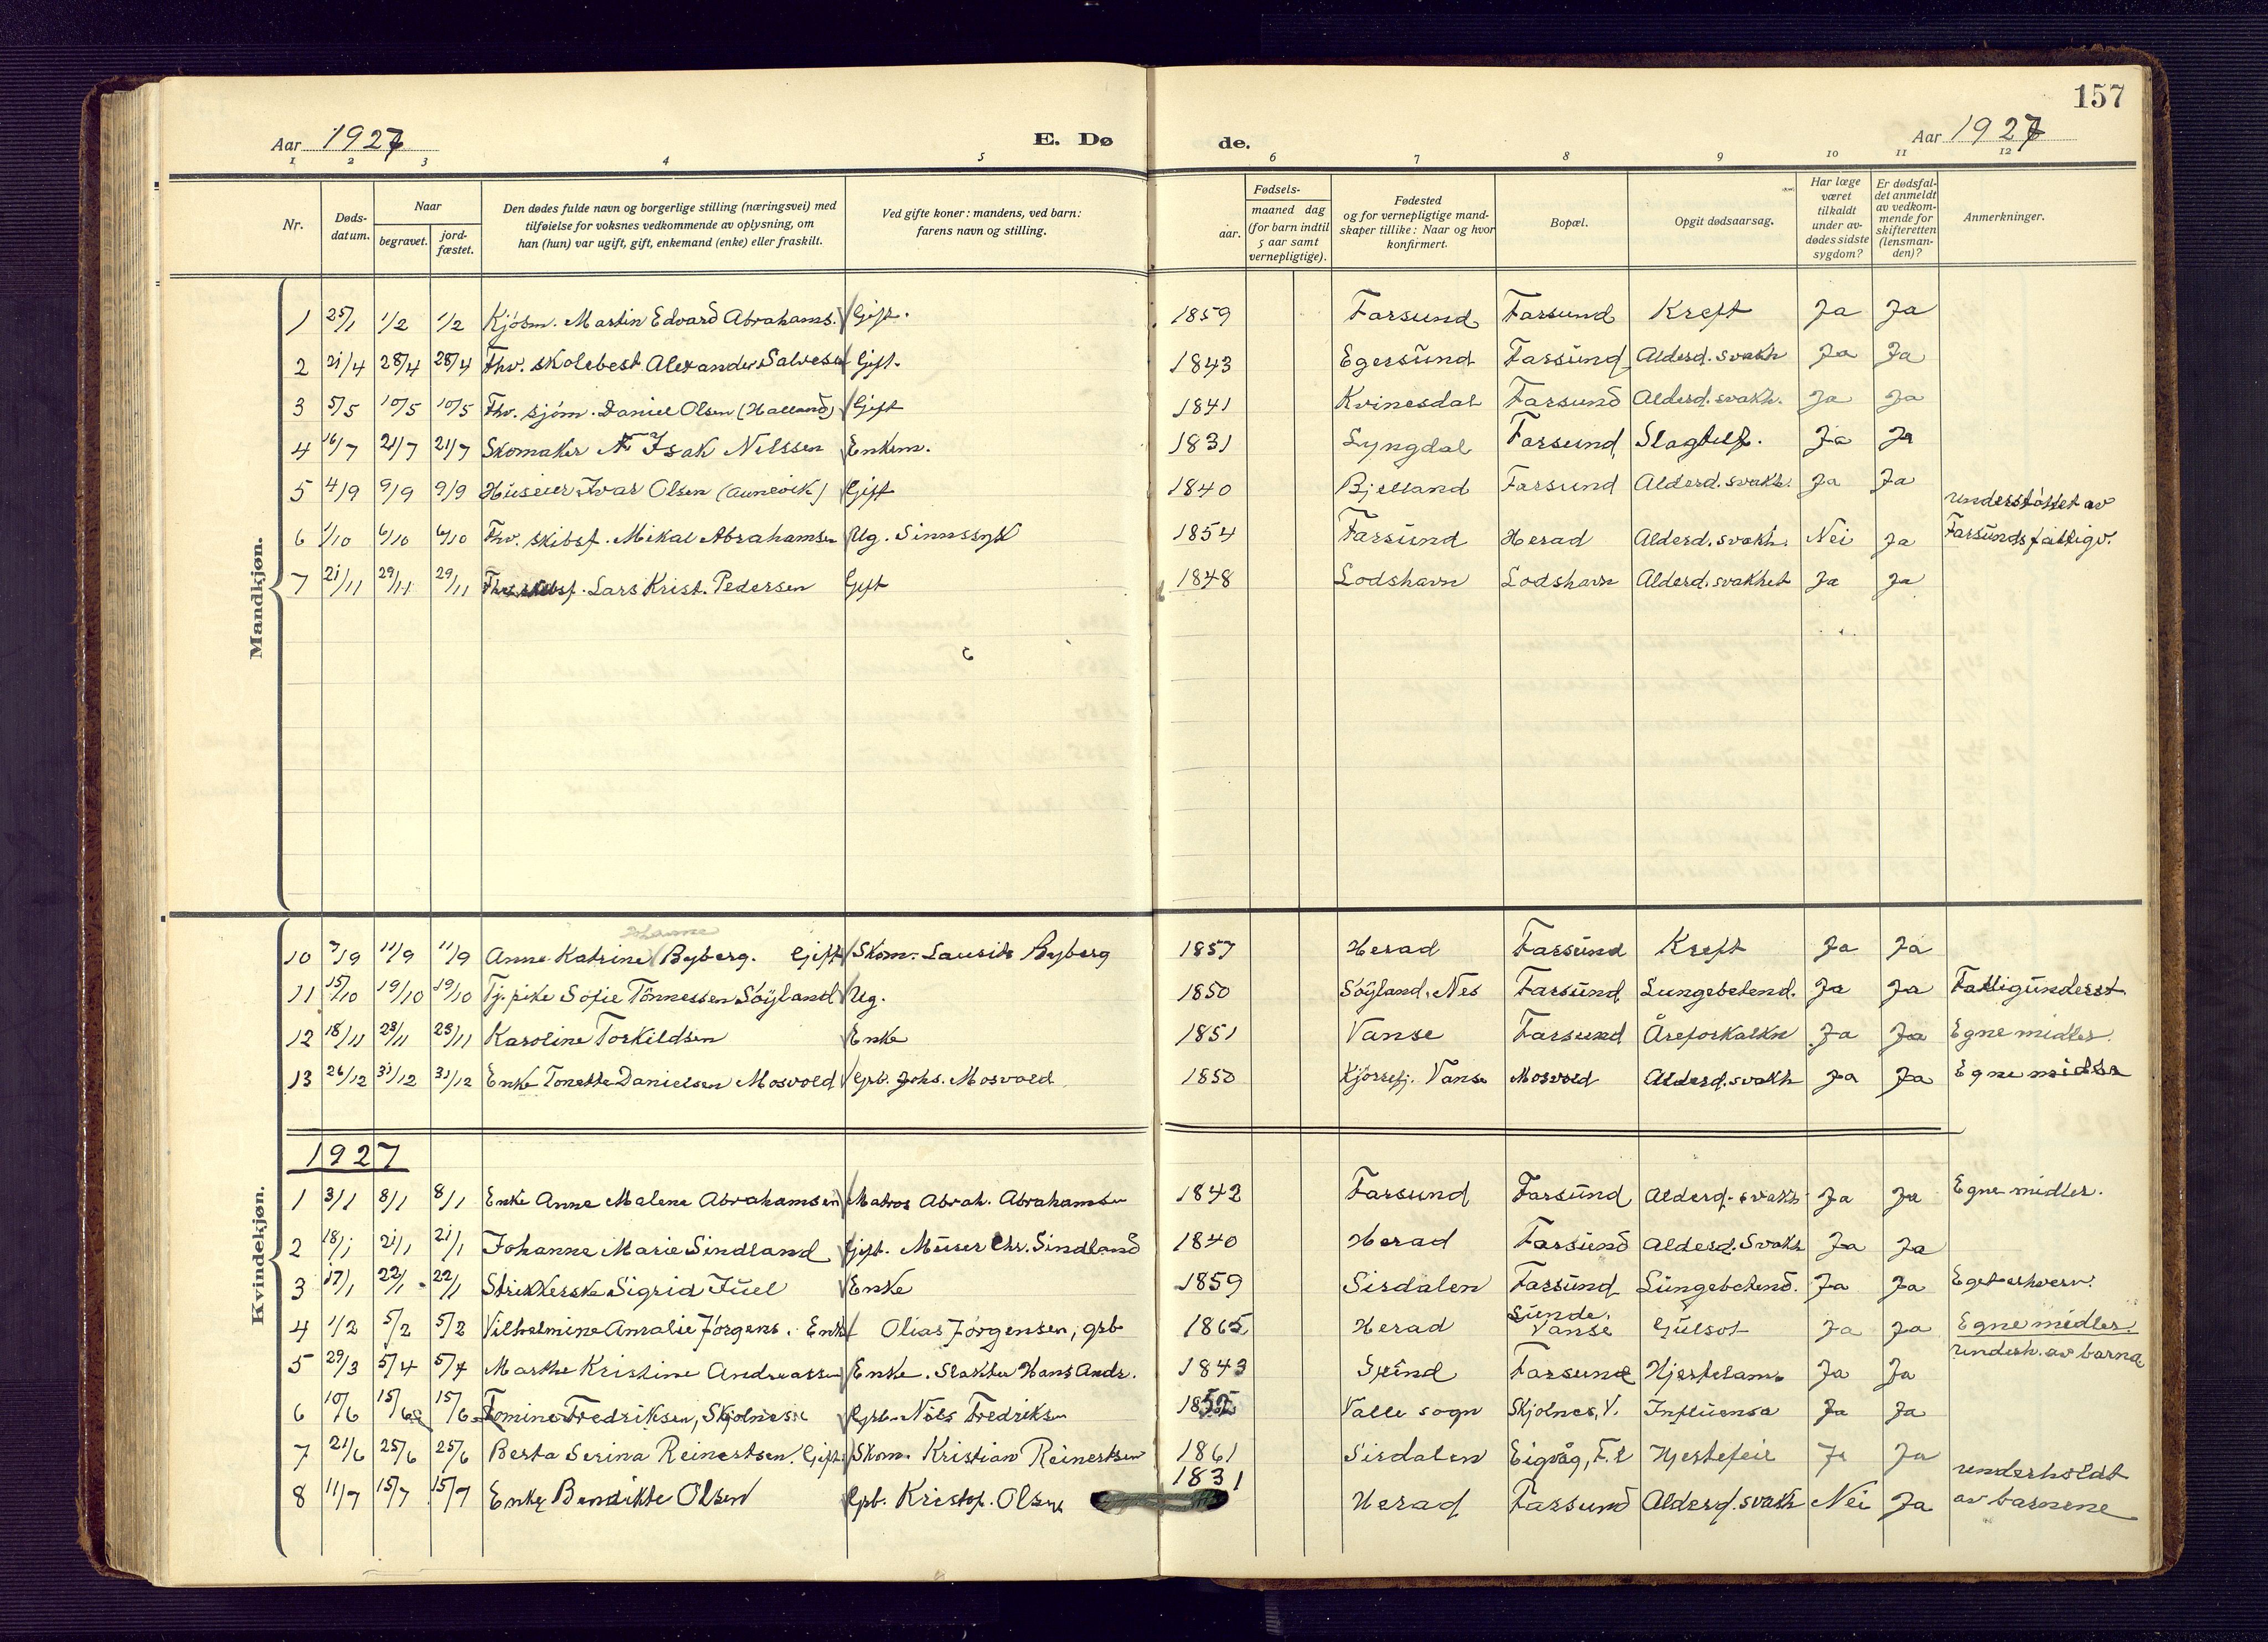 157
Aar 1927 E. Dø de. Aar 1927
1 2 3 4 5 6 7 8 9 10 11 12
Nr. Døds-datum. Naar begravet. jord-fæstet. Den dødes fulde navn og borgerlige stilling (næringsvei) med tilføielse for voksnes vedkommende av oplysning, om han (hun) var ugift, gift, enkemand (enke) eller fraskilt. Ved gifte koner: mandens, ved barn: farens navn og stilling. Fødsels- aar. maaned dag (for barn indtil 5 aar samt vernepligtige). Fødested og for vernepligtige mandskaper tillike: Naar og hvor konfirmert. Bopæl. Opgit dødsaarsag. Har læge været tilkaldt under avdødes sidste sygdom? Er dødsfaldet anmeldt av vedkommende for skifteretten (lensmanden)? Anmerkninger.
Mandkjøn.
1 25/1 1/2 1/2 Kjøsm. Martin Edvard Abrahams. Gift. 1859 Farsund Farsund Kreft Ja Ja
2 21/4 28/4 28/4 Fhv. skolebest Alexander Salvesen Gift. 1843 Egersund Farsund Alderd. svakh Ja Ja
3 5/5 10/5 10/5 Fhv. sjøm. Daniel Olsen (Halland) Gift 1841 Kvinesdal Farsund Alderd. svakh. Ja Ja
4 16/7 21/7 21/7 Skomaker Isak Nilssen Enkem. 1831 Lyngdal Farsund Slagtilf. Ja Ja
5 4/9 9/9 9/9 Huseier Ivar Olsen (Aunevik) Gift 1840 Bjelland Farsund Alderd. svakh. Ja Ja
6 1/10 6/10 6/10 Fhv. skibsf. Mikal Abrahamsen Ug. Sinnssyk 1854 Farsund Herad Alderd. svakh. Nei Ja understøttet av Farsunds fattigv.
7 21/11 29/11 29/11 Fhv. skibsf. Lars Krist. Pedersen Gift 1848 Lodshavn Lodshavn Alderd. svakhet Ja Ja
Kvindekjøn.
Johanne
10 7/9 11/9 11/9 Anne Katrine Byberg. Gift Skom. Lausits Byberg 1857 Herad Farsund Kreft Ja Ja
11 15/10 19/10 19/10 Tj. pike Sofie Tønnessen Søyland Ug. 1850 Søyland, Nes Farsund Lungebetend. Ja Ja Fattigunderst.
12 18/11 23/11 23/11 Karoline Torkildsen Enke 1851 Vanse Farsund Åreforkalkn Ja Ja Egne midler.
13 26/12 31/12 31/12 Enke Tonette Danielsen Mosvold Grb. Johs. Mosvold 1850 Vanse Mosvold Alderd. svakh Ja Ja Egne midler
1927
1 3/1 8/1 8/1 Enke Anne Malene Abrahamsen Matros Abrah. Abrahamsen 1842 Farsund Farsund Alderd. svakh Ja Ja Egne midler.
2 18/1 21/1 21/1 Johanne Marie Sindland Gift. Murer Chr. Sindland 1840 Herad Farsund Alderd. Svakh Ja Ja
3 17/1 22/1 22/1 Strikkerske Sigrid Juel Enke 1859 Sirdalen Farsund Lungebetend. Ja Ja Eget erhverv.
4 1/2 5/2 5/2 Vilhelmine Amalie Jørgens. Enke Olias Jørgensen, grb 1865 Herad Sunde. Vanse Gulsot Ja Ja Egne midler.
5 29/3 5/4 5/4 Marthe Kristine Andreassen Enke. Slakter Hans Andr. 1843 Spind Farsund Hjertelam. Ja Ja underh. av barna
6 10/6 15/6 15/6 Tomine Fredriksen, Skjolnes Grb. Nils Fredriksen 1852 Valle sogn Skjolnes, V. Influensa Ja Ja
7 21/6 25/6 25/6 Berta Serina Reinertsen. Gift. Skom. Kristian Reinertsen 1861 Sirdalen Eigvåg, F. l Hjertefeil Ja Ja
8 11/7 15/7 15/7 Enke Bendikte Olsen Grb. Kristof. Olsen 1831 Herad Farsund Alderd. svakh Nei Ja underholdt av barnene